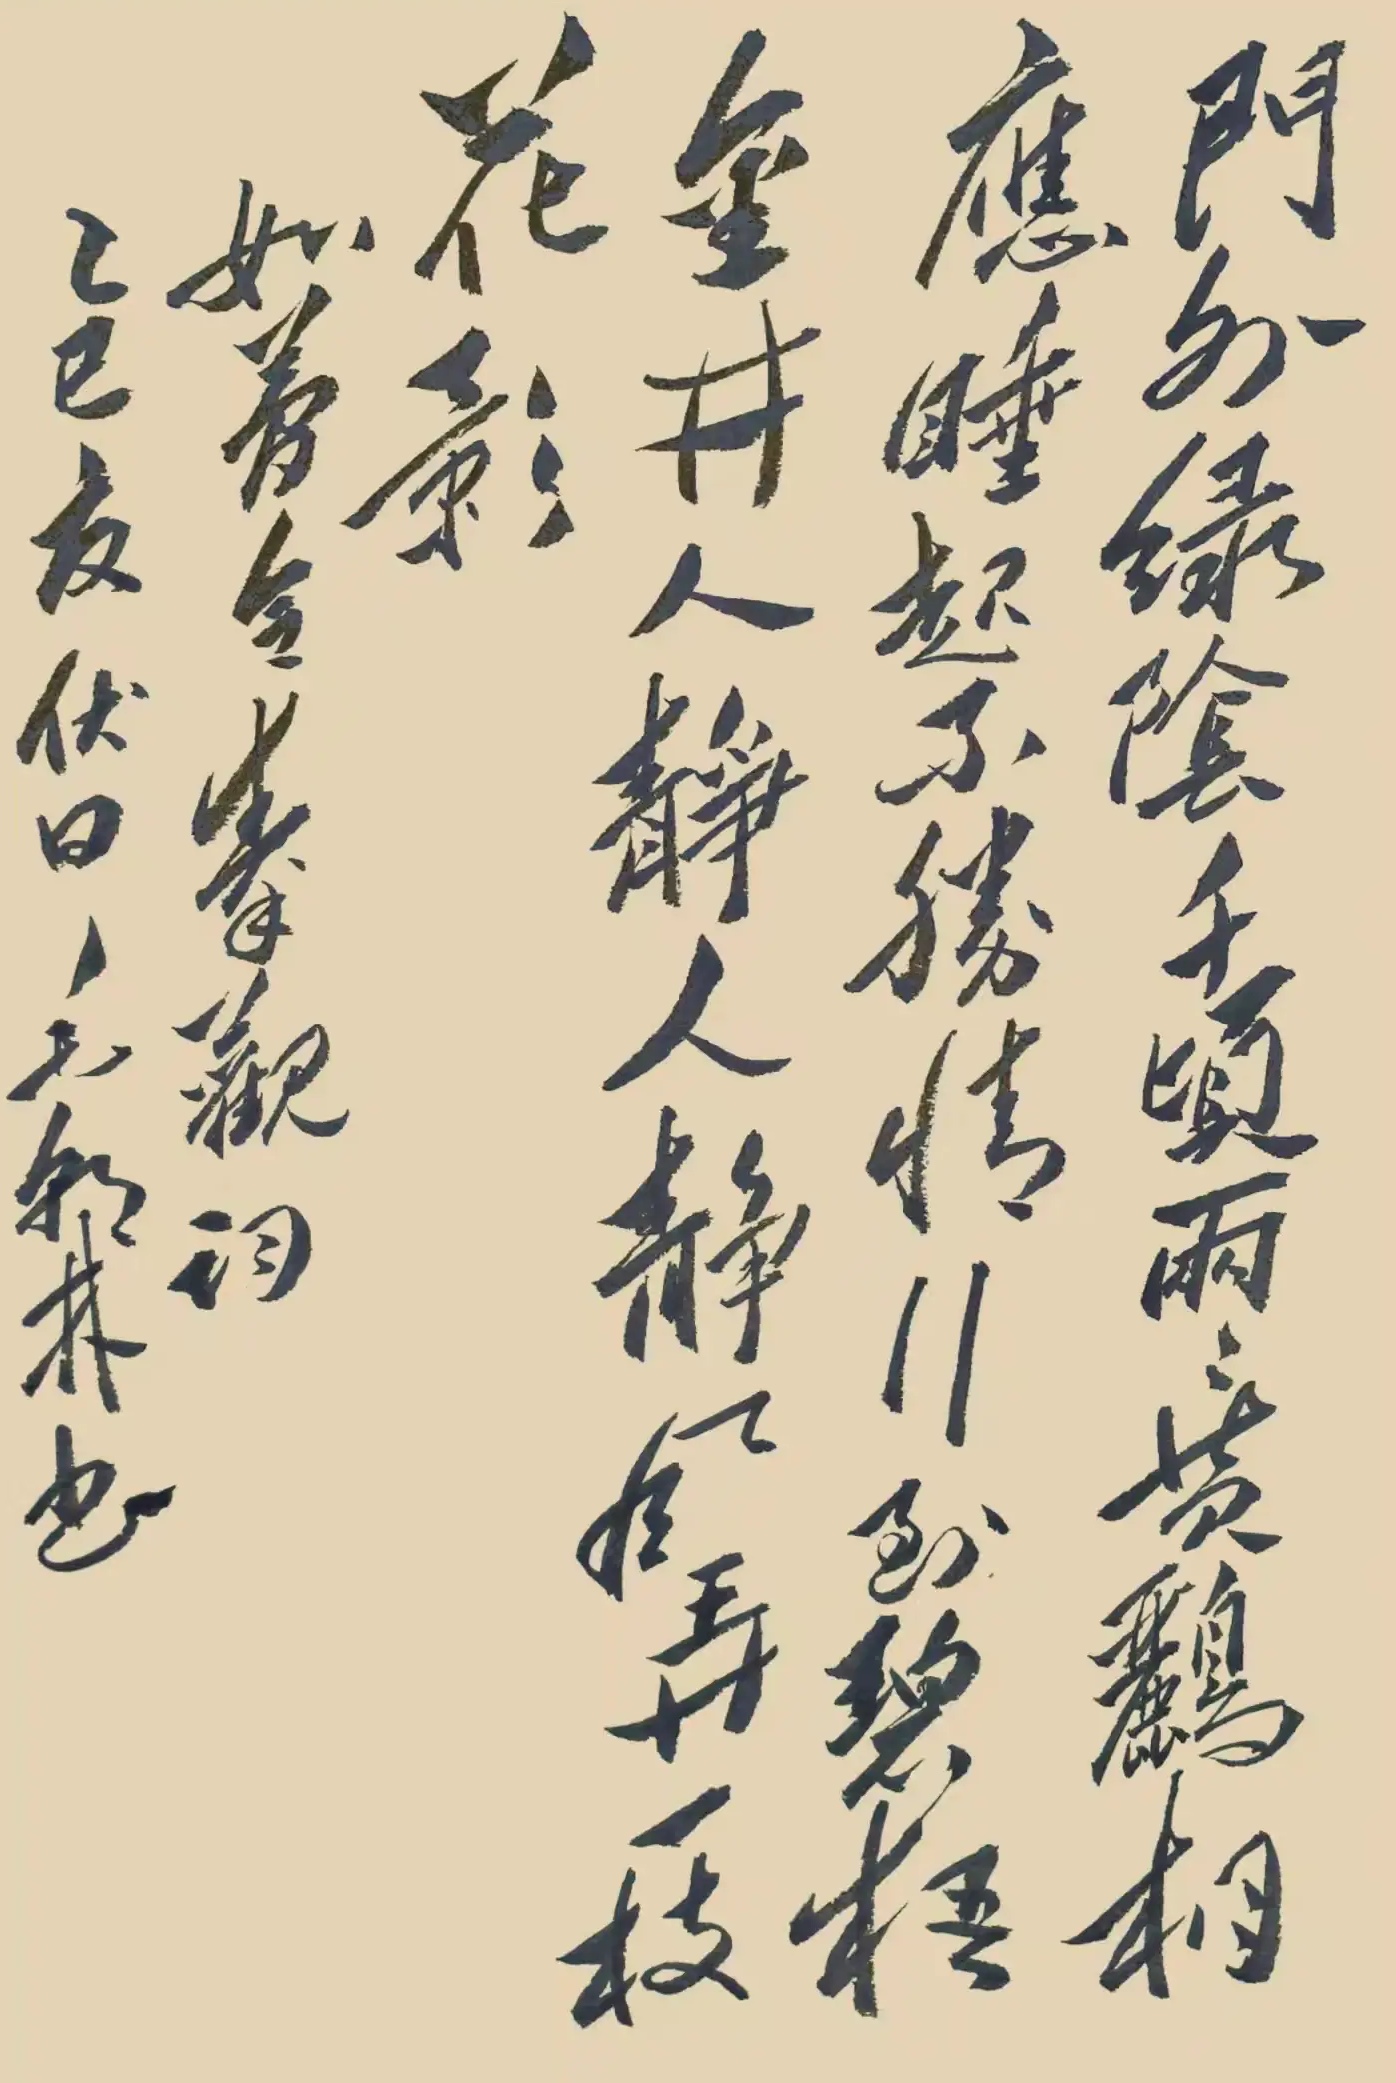 門外綠陰千頃兩々黃鸝相
應睡起不勝情行到碧梧
金井人靜人靜風弄一枝
花影
如夢令秦觀詞
乙巳夏伏日林书